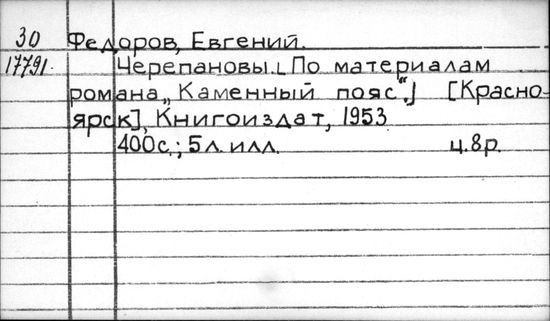 30 Федоров, Евгений.
17791. Черепановы. [По материалам
романа „Каменный пояс“.] [Красно-
ярск], Книгоиздат, 1953
400с.; 5л. илл. ц.8р.